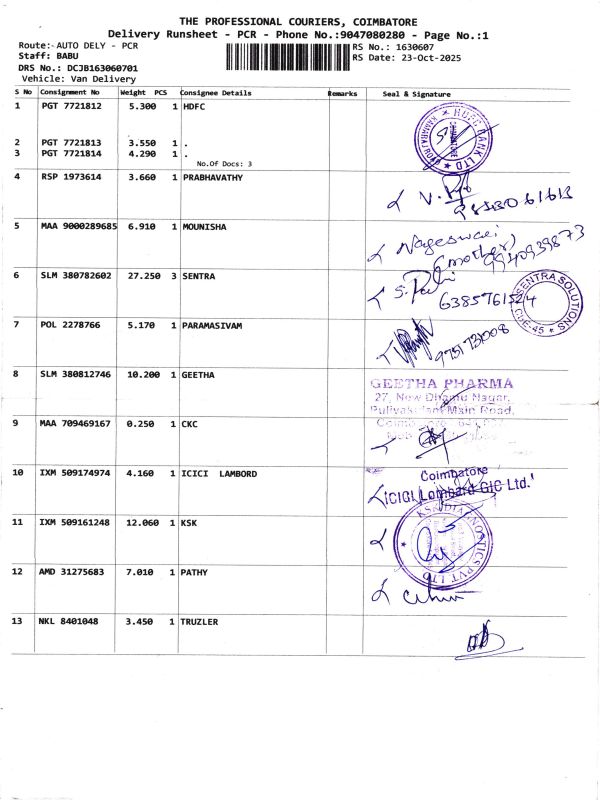 THE PROFESSIONAL COURIERS, COIMBATORE
Delivery Runsheet - PCR - Phone No.:9047080280 - Page No.:1
Route:-AUTO DELY - PCR
RS No.: 1630607
Staff: BABU
RS Date: 23-Oct-2025
DRS No.: DCJB163060701
Vehicle: Van Delivery
S No Consignment No Weight PCS Consignee Details Remarks Seal & Signature
1 PGT 7721812 5.300 1 HDFC
HDFC BANK LTD
KAMARAJ ROAD
COIMBATORE
2 PGT 7721813 3.550 1 .
3 PGT 7721814 4.290 1 .
No.Of Docs: 3
4 RSP 1973614 3.660 1 PRABHAVATHY
5 MAA 9000289685 6.910 1 MOUNISHA
Nageswari
(mother)
9940939873
6 SLM 380782602 27.250 3 SENTRA
SENTRA SOLUTIONS
CBE-45
7 POL 2278766 5.170 1 PARAMASIVAM
8 SLM 380812746 10.200 1 GEETHA
GEETHA PHARMA
27, New Dhamu Nagar,
Main Road,
9 MAA 709469167 0.250 1 CKC
10 IXM 509174974 4.160 1 ICICI LAMBORD
Coimbatore
ICICI Lombard GIC Ltd.
11 IXM 509161248 12.060 1 KSK
DIAGNOSTICS PVT LTD
12 AMD 31275683 7.010 1 PATHY
13 NKL 8401048 3.450 1 TRUZLER